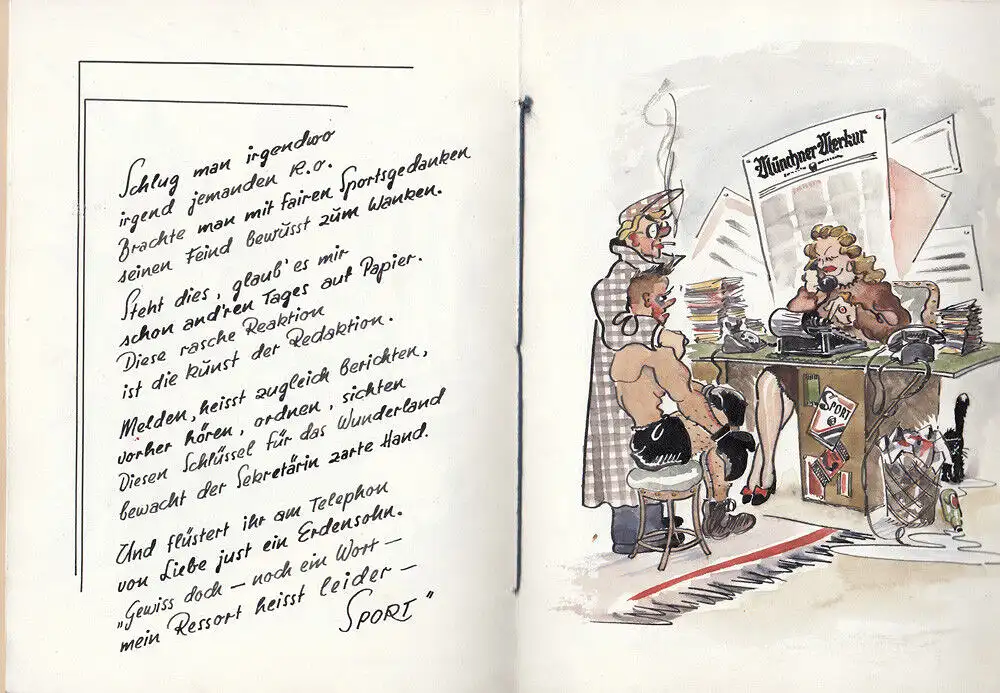 Schlug man irgendwo
irgend jemanden K.o.
Brachte man mit fairen Sportsgedanken
seinen Feind bewusst zum Wanken.
Steht dies, glaub' es mir
schon and'ren Tages auf Papier.
Diese rasche Reaktion
ist die Kunst der Redaktion.
Melden, heisst zugleich berichten,
vorher hören, ordnen, sichten
Diesen Schlüssel für das Wunderland
bewacht der Sekretärin zarte Hand.
Und flüstert ihr am Telephon
von Liebe just ein Erdensohn.
„Gewiss doch – noch ein Wort –
mein Ressort heisst leider –
SPORT"
Münchner Merkur
SPORT